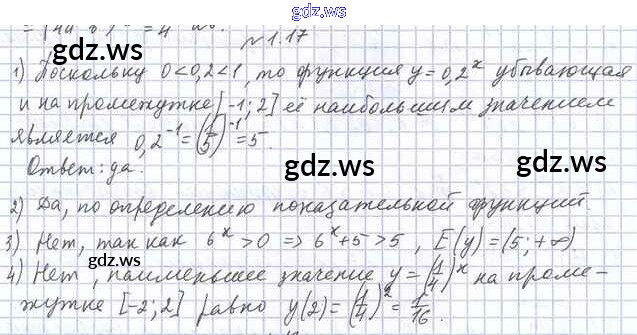 gdz.ws
№1.17
gdz.ws gdz.ws
1) Поскольку 0<0,2<1, то функция y=0,2^x убывающая
и на промежутке [-1; 2] её наибольшим значением
является 0,2^-1=(1/5)^-1=5.
gdz.ws gdz.ws
Ответ: да.
2) Да, по определению показательной функций.
3) Нет, так как 6^x>0 => 6^x+5>5, E(y)=(5;+∞).
gdz.ws gdz.ws
4) Нет, наименьшее значение y=(1/4)^x на проме-
жутке [-2; 2] равно y(2)=(1/4)^2=1/16.
gdz.ws